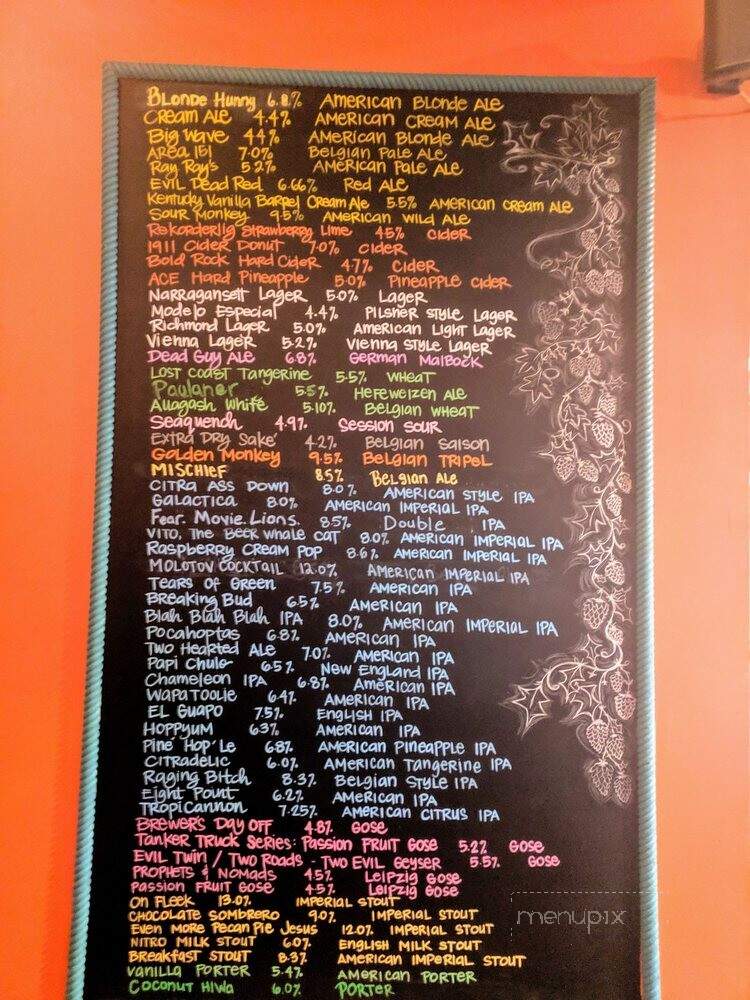 Blonde Hunny 6.8% American Blonde Ale
Cream Ale 4.4% American Cream Ale
Big Wave 4.4% American Blonde Ale
Area 151 7.0% Belgian Pale Ale
Ray Ray's 5.2% American Pale Ale
Evil Dead Red 6.66% Red Ale
Kentucky Vanilla Barrel Cream Ale 5.5% American Cream Ale
Sour Monkey 9.5% American Wild Ale
Rekorderlig Strawberry Lime 4.5% Cider
1911 Cider Donut 7.0% Cider
Bold Rock Hard Cider 4.7% Cider
ACE Hard Pineapple 5.0% Pineapple Cider
Narragansett Lager 5.0% Lager
Modelo Especial 4.4% Pilsner Style Lager
Richmond Lager 5.0% American Light Lager
Vienna Lager 5.2% Vienna Style Lager
Dead Guy Ale 6.8% German Maibock
Lost Coast Tangerine 5.5% Wheat
Paulaner 5.5% Hefeweizen Ale
Allagash White 5.10% Belgian Wheat
Seaquench 4.9% Session Sour
Extra Dry Sake' 4.2% Belgian Saison
Golden Monkey 9.5% Belgian Tripel
Mischief 8.5% Belgian Ale
Citra Ass Down 8.0% American Style IPA
Galactica 8.0% American Imperial IPA
Fear. Movie. Lions. 8.5% Double IPA
Vito, The Beer Whale Cat 8.0% American Imperial IPA
Raspberry Cream Pop 8.6% American Imperial IPA
Molotov Cocktail 12.0% American Imperial IPA
Tears of Green 7.5% American IPA
Breaking Bud 6.5% American IPA
Blah Blah Blah IPA 8.0% American Imperial IPA
Pocahoptas 6.8% American IPA
Two Hearted Ale 7.0% American IPA
Papi Chulo 6.5% New England IPA
Chameleon IPA 6.8% American IPA
Wapatoolie 6.4% American IPA
El Guapo 7.5% English IPA
Hoppyum 6.3% American IPA
Pine Hop' Le 6.8% American Pineapple IPA
Citradelic 6.0% American Tangerine IPA
Raging Bitch 8.3% Belgian Style IPA
Eight Point 6.2% American IPA
Tropicannon 7.25% American Citrus IPA
Brewer's Day Off 4.8% Gose
Tanker Truck Series: Passion Fruit Gose 5.2% Gose
Evil Twin / Two Roads - Two Evil Geyser 5.5% Gose
Prophets & Nomads 4.5% Leipzig Gose
Passion Fruit Gose 4.5% Leipzig Gose
On Fleek 13.0% Imperial Stout
Chocolate Sombrero 9.0% Imperial Stout
Even More Pecan Pie Jesus 12.0% Imperial Stout
Nitro Milk Stout 6.0% English Milk Stout
Breakfast Stout 8.3% American Imperial Stout
Vanilla Porter 5.4% American Porter
Coconut Hiwa 6.0% Porter
menupix